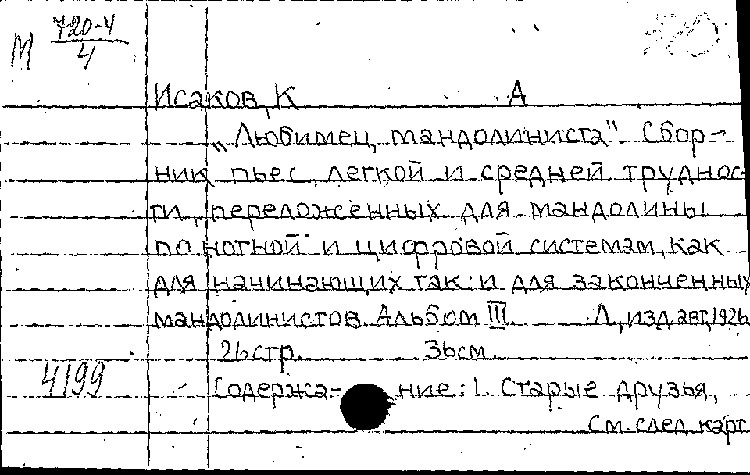 М 720-4
4
Исаков, К А
„Любимец мандолиниста". Сбор-
ник пьес легкой и средней труднос-
ти, переложенных для мандолины
по нотной и цифровой системам, как
для начинающих так и для законченных
мандолинистов. Альбом III. Л., изд. авт., 1926
26 стр. 36 см.
4199
Содержа- ние: 1. Старые друзья,
См. след. карт.